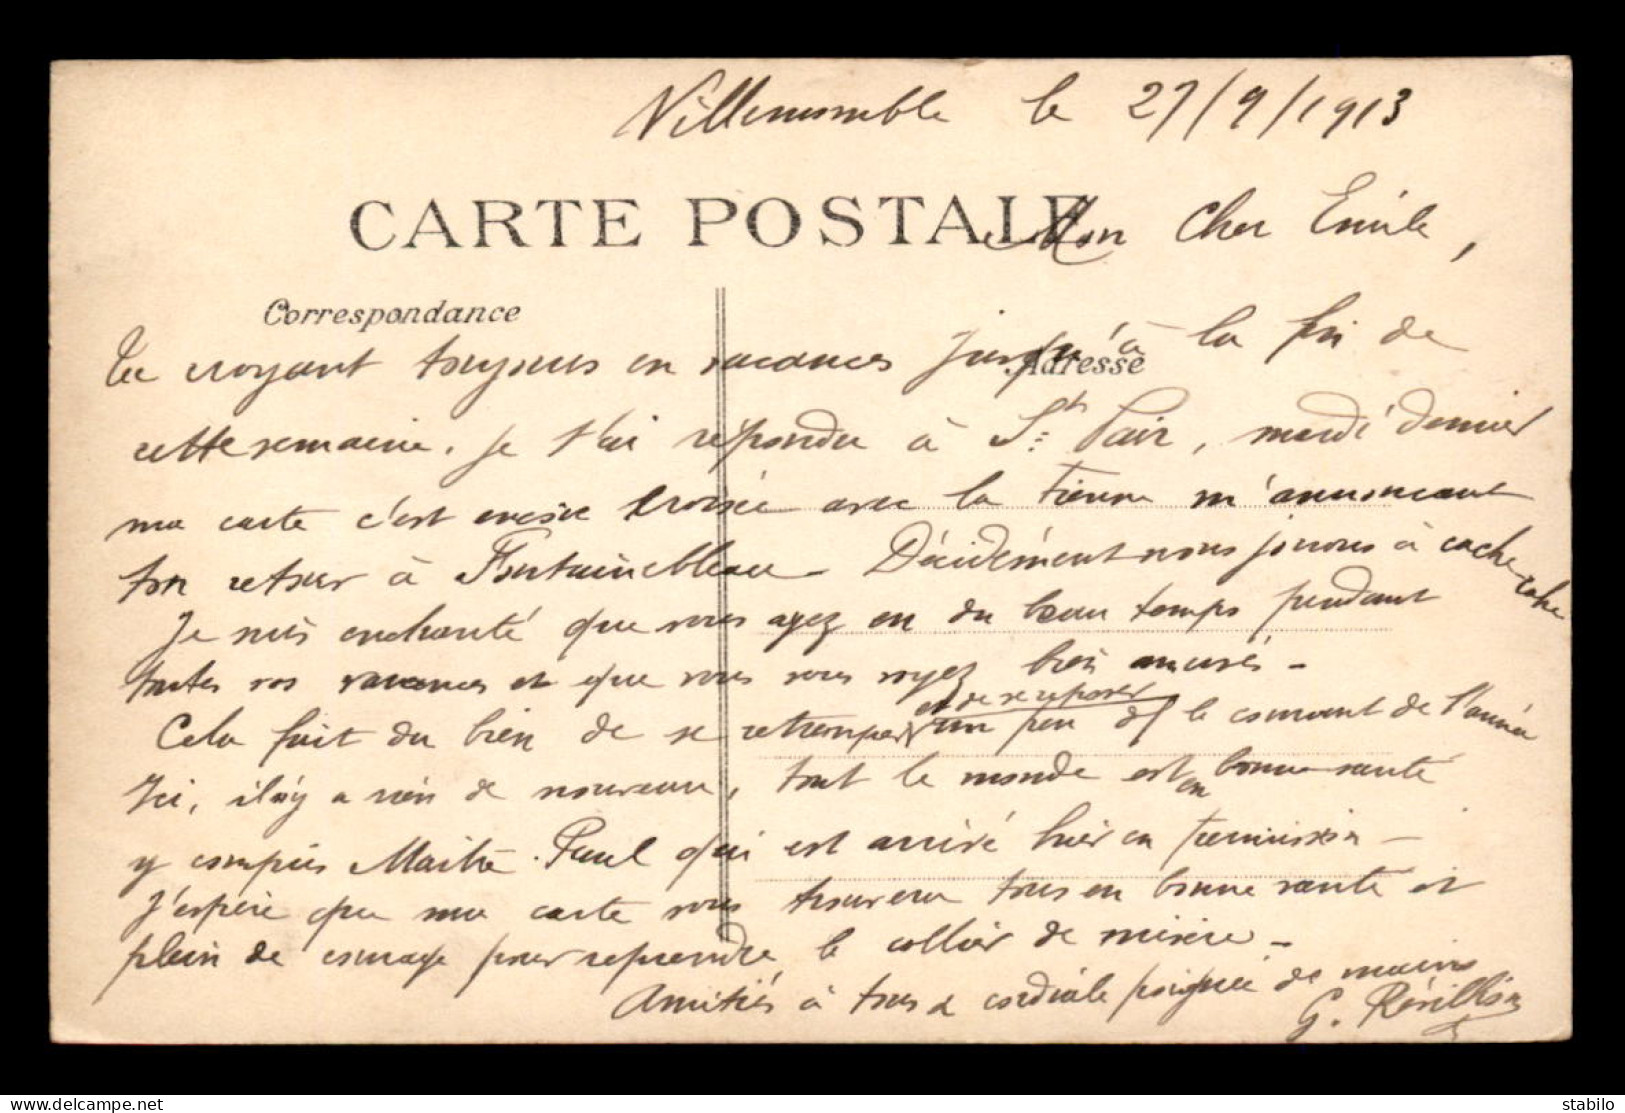 Villemomble le 27/9/1913
CARTE POSTALE
Mon Cher Emile,
Correspondance
Adresse
Te croyant toujours en vacances jusqu'à la fin de
cette semaine, je t'ai répondu à St Pair, mardi dernier
ma carte s'est encore croisée avec la tienne m'annoncant
ton retour à Fontainebleau - Décidément nous jouons à cache cache
Je suis enchanté que vous ayez eu du beau temps pendant
toutes vos vacances et que vous vous soyez bien amusés -
Cela fait du bien de se retremper et de se reposer un peu le courant de l'année
Ici, il n'y a rien de nouveau, tout le monde est en bonne santé
y compris Maître Paul qui est arrivé hier en permission -
J'espère que ma carte vous trouvera tous en bonne santé et
plein de courage pour reprendre le collier de misère -
Amitiés à tous & cordiale poignée de mains
G.
delcampe.net
stabilo